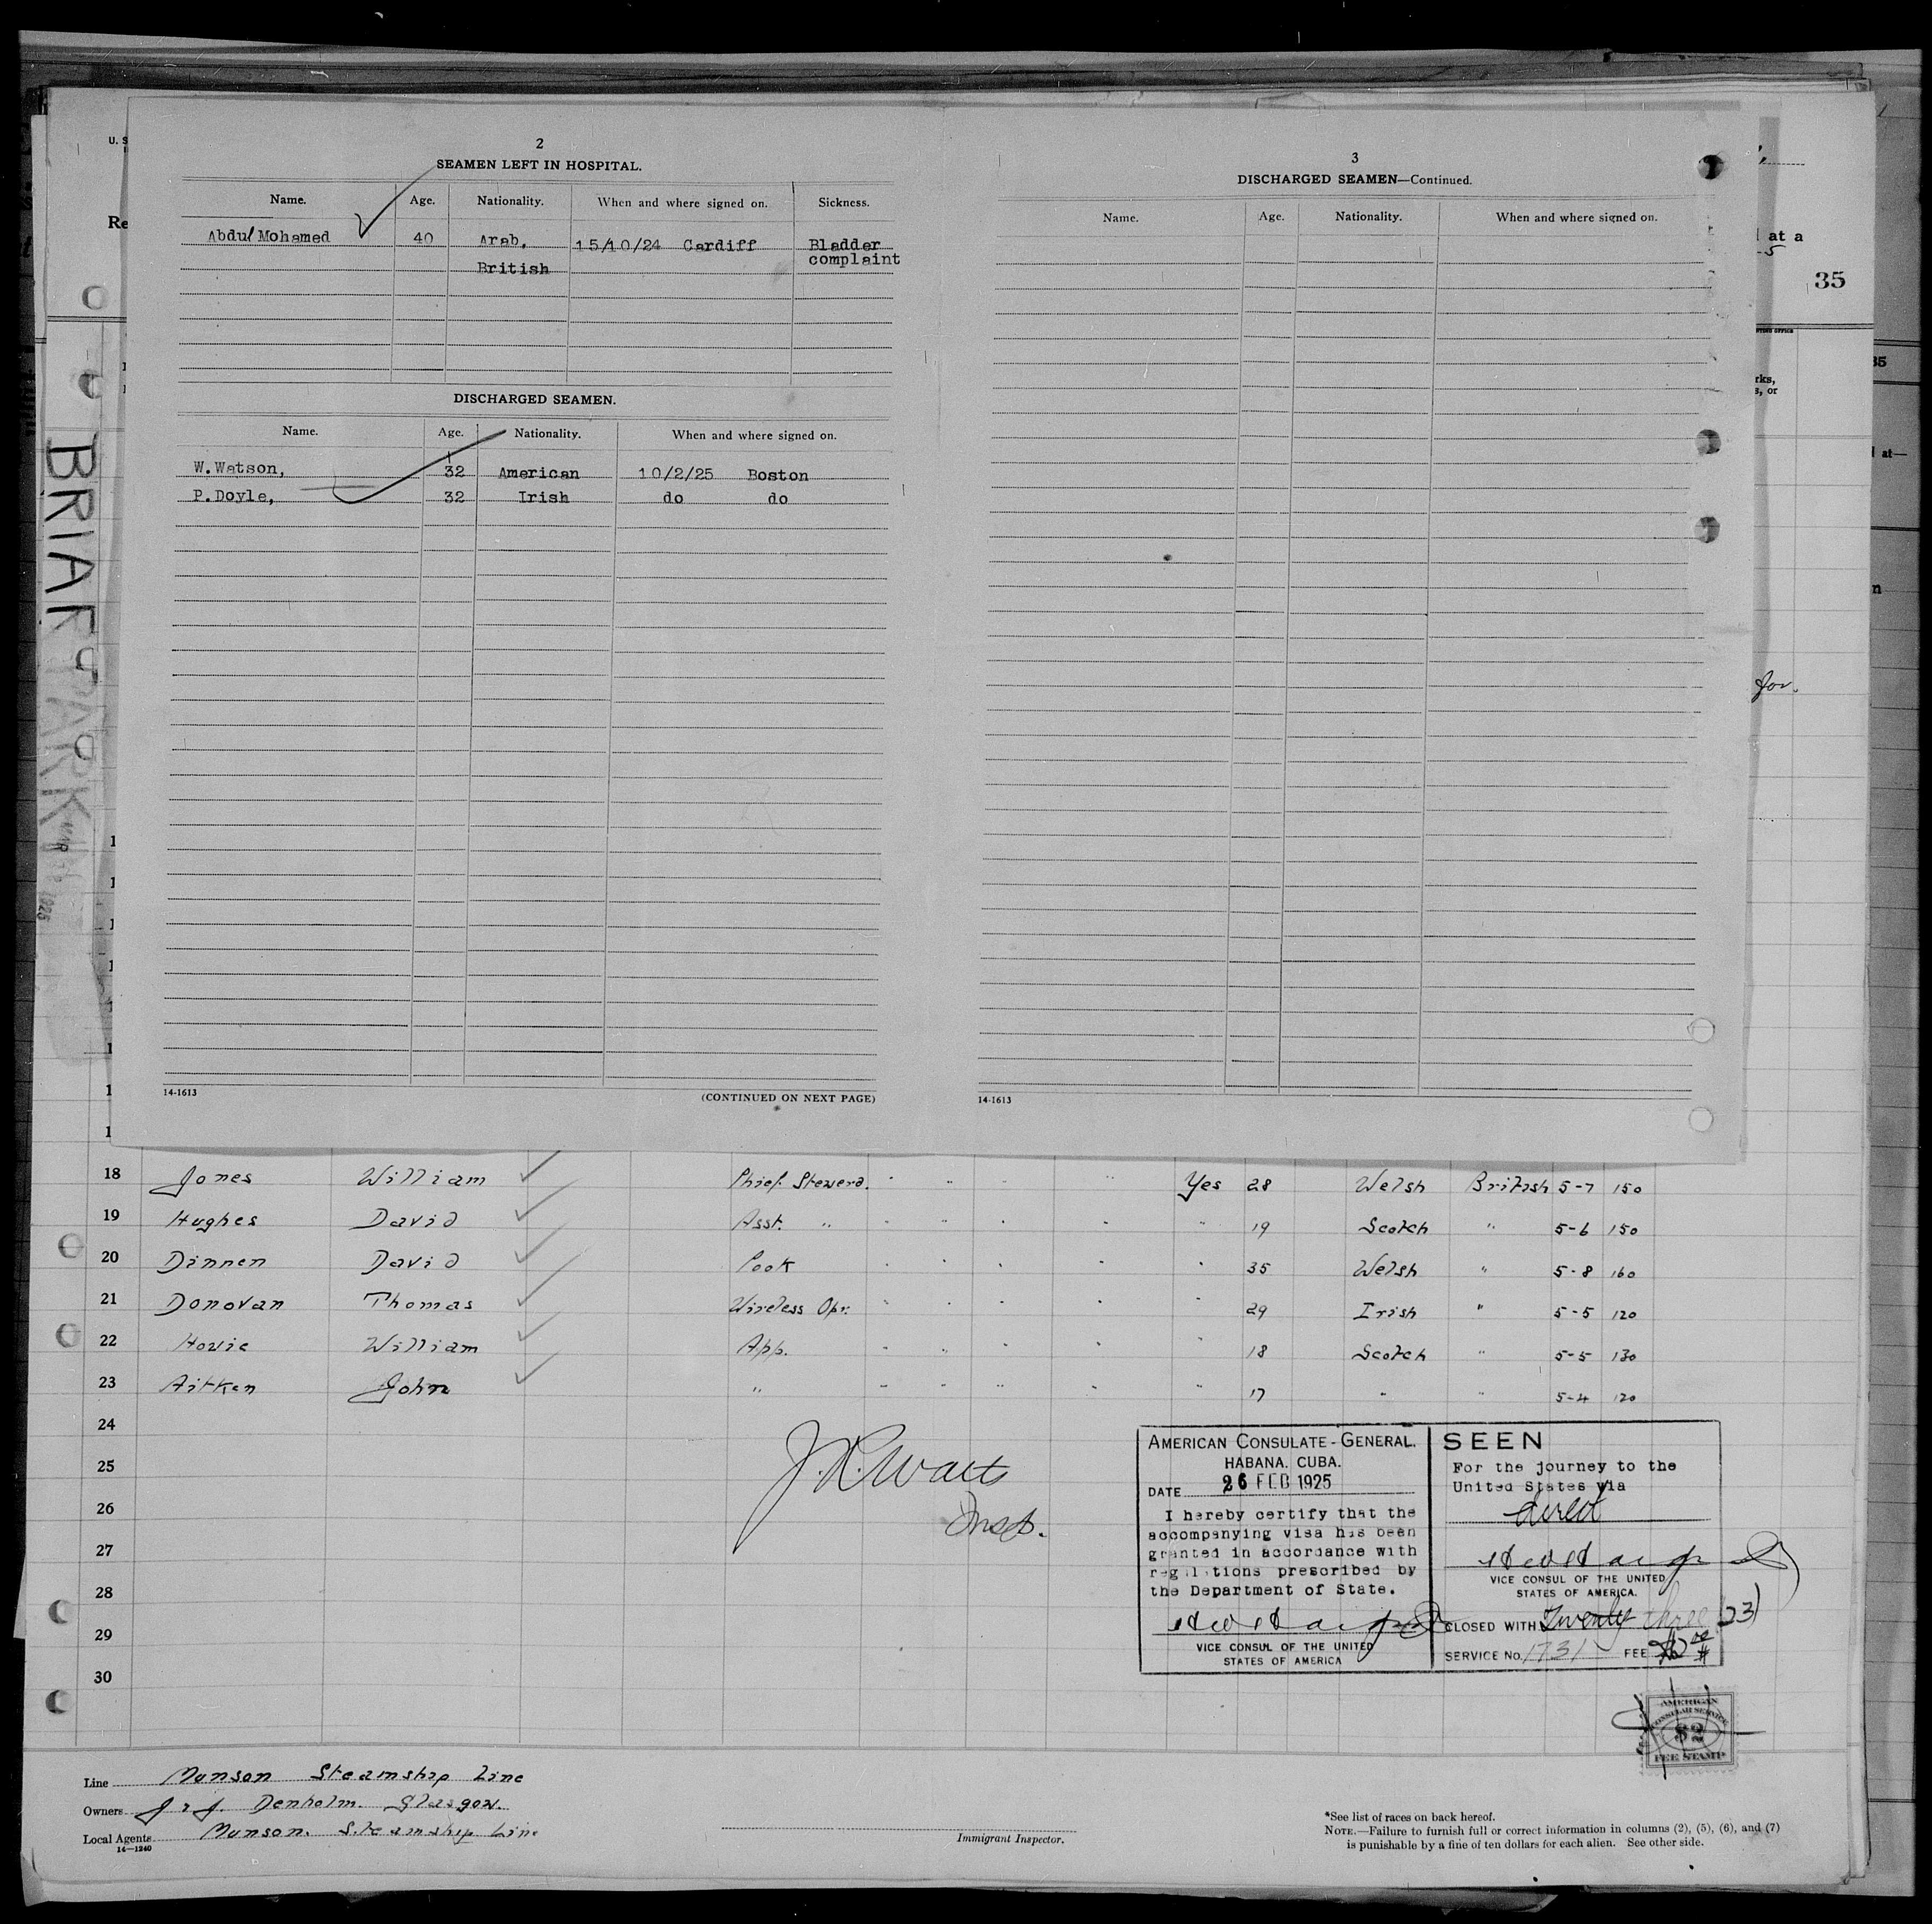 2
SEAMEN LEFT IN HOSPITAL.
Name. Age. Nationality. When and where signed on. Sickness.
Abdul Mohamed 40 Arab, 15/10/24 Cardiff Bladder
British complaint
DISCHARGED SEAMEN.
Name. Age. Nationality. When and where signed on.
W.Watson, 32 American 10/2/25 Boston
P.Doyle, 32 Irish do do
14-1613 (CONTINUED ON NEXT PAGE)
3
DISCHARGED SEAMEN—Continued.
Name. Age. Nationality. When and where signed on.
14-1613
U. S
Re
at a
5
35
35
rks,
s, or
at—
n
for.
BRIARPARK
18 Jones William Chief Steward. " " " " Yes 28 Welsh British 5-7 150
19 Hughes David Asst. " " " " " " 19 Scotch " 5-6 150
20 Dinnen David Cook " " " " " 35 Welsh " 5-8 160
21 Donovan Thomas Wireless Opr. " " " " " 29 Irish " 5-5 120
22 Howie William App. " " " " " 18 Scotch " 5-5 130
23 Aitken John " " " " " " 17 " " 5-4 120
24
25
26
27
28
29
30
Insp.
AMERICAN CONSULATE-GENERAL.
HABANA. CUBA.
DATE 26 FEB 1925
I hereby certify that the
accompanying visa has been
granted in accordance with
regulations prescribed by
the Department of State.
VICE CONSUL OF THE UNITED
STATES OF AMERICA
SEEN
For the journey to the
United States via
direct
VICE CONSUL OF THE UNITED
STATES OF AMERICA.
CLOSED WITH Twenty three (23)
SERVICE No. 1731 FEE
AMERICAN
CONSULAR SERVICE
$2
FEE STAMP
Line Munson Steamship Line
Owners J & J. Denholm. Glasgow.
Local Agents Munson. Steamship Line
14—1240
Immigrant Inspector.
*See list of races on back hereof.
NOTE.—Failure to furnish full or correct information in columns (2), (5), (6), and (7)
is punishable by a fine of ten dollars for each alien. See other side.